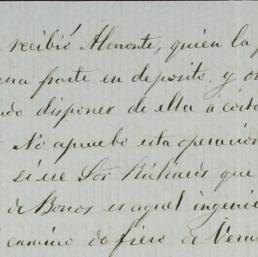 recibió Almonte, quien la p
una parte en deposito, y o
ndo disponer de ella á córto
No apruebo esta operacion
si ese Sor Richards que
de Bonos es aquel ingenie
camino de fiero de Vera